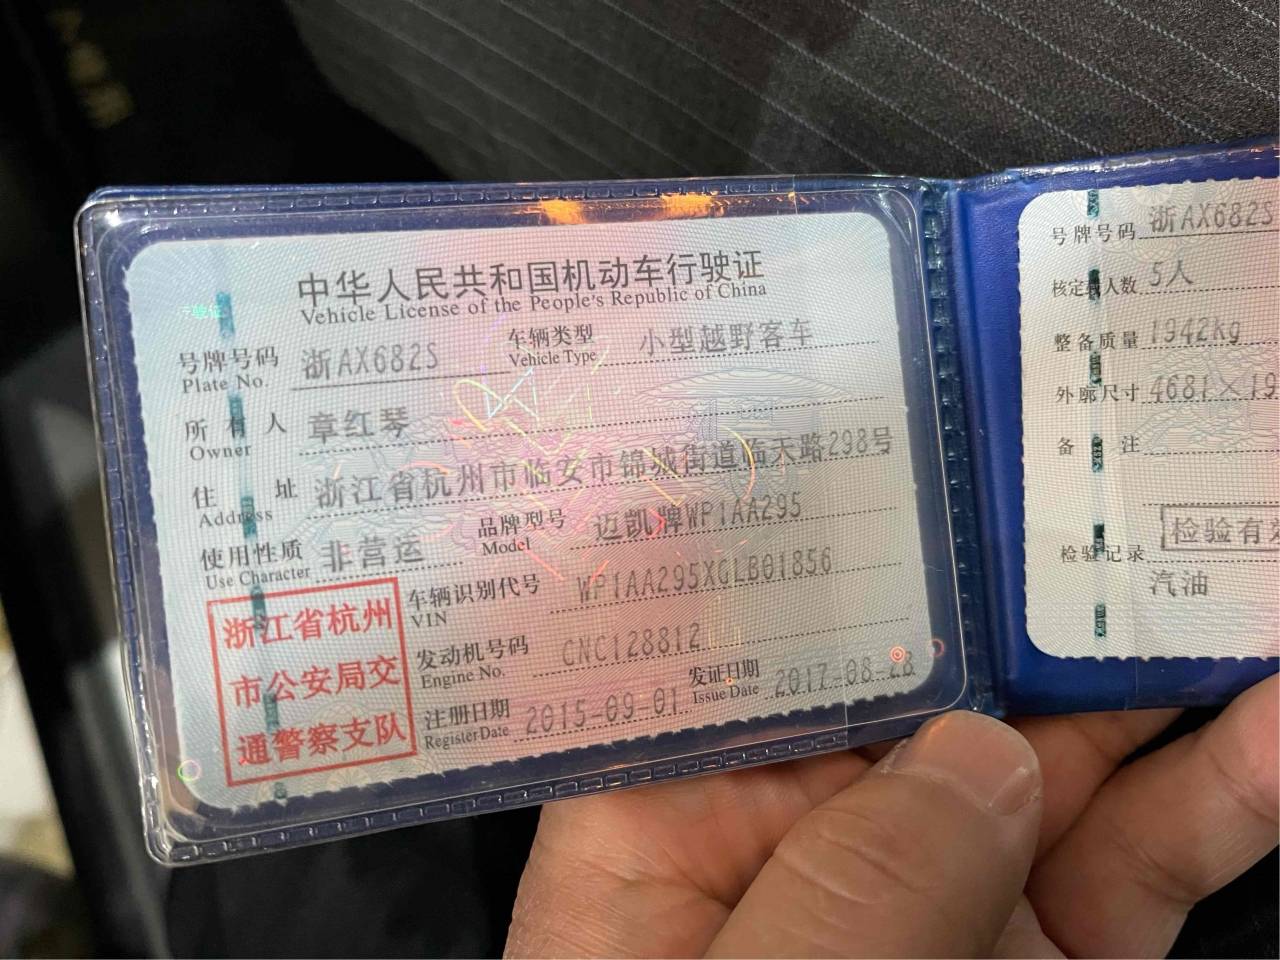 中华人民共和国机动车行驶证
Vehicle License of the People's Republic of China
号牌号码 浙AX682S 车辆类型 小型越野客车
Plate No. Vehicle Type
所有人 章红琴
Owner
住址 浙江省杭州市临安市锦城街道临天路298号
Address
使用性质 非营运 品牌型号 迈凯牌WP1AA295
Use Character Model
车辆识别代号 WP1AA295XGLB01856
VIN
发动机号码 CNC128812
Engine No.
注册日期 2015-09-01 发证日期 2017-08-28
Register Date Issue Date
浙江省杭州
市公安局交
通警察支队
号牌号码 浙AX682S
核定载人数 5人
整备质量 1942kg
外廓尺寸 4681×19
备注
检验有
检验记录
汽油